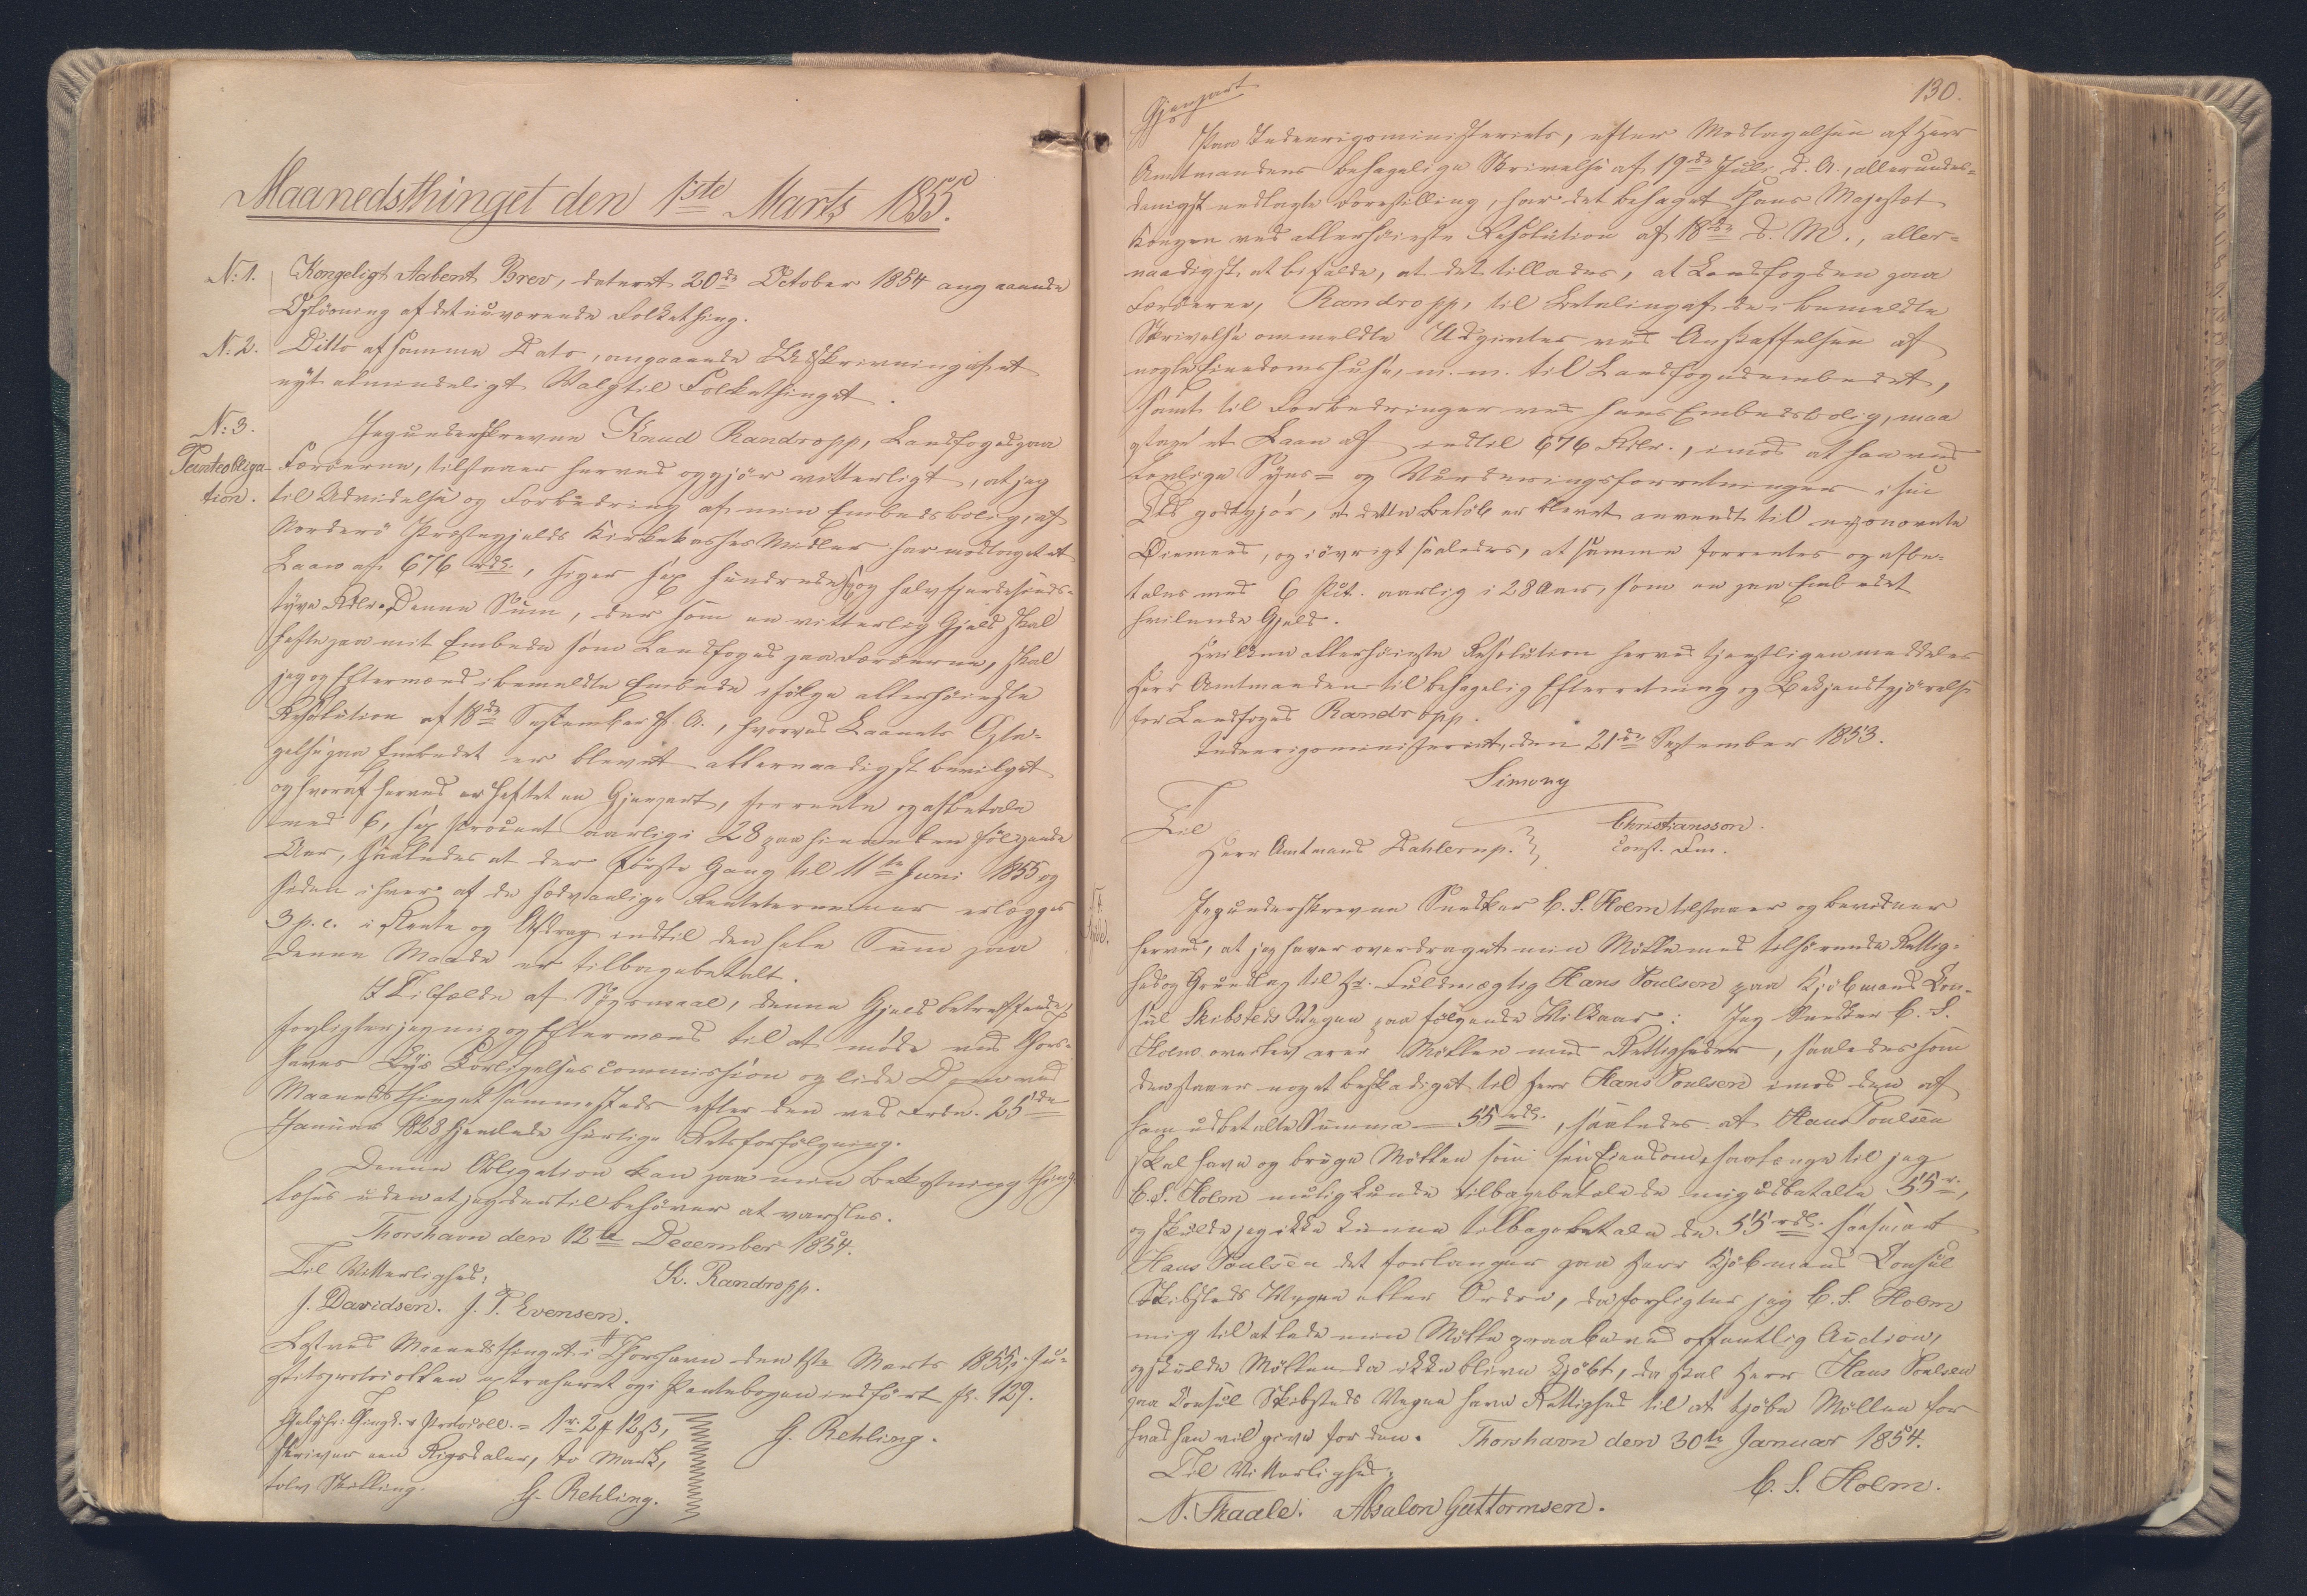 Maanedsthinget den 1ste Marts 1855.
N: 1. Kongeligt Aabent Brev, dateret 20de October 1854 angaaende
Opløsning af det nuværende Folkething.
N: 2. Ditto af samme Dato, angaaende Udskrivning af et
nyt almindeligt Valg til Folkethinget.
N: 3. Jeg underskrevne Knud Randropp, Landfoged paa
Panteobliga- Færøerne, tilstaaer herved og gjør vitterligt, at jeg
tion. til Udvidelse og Forbedring af min Embedsbolig, af
Norderø Præstegjelds Kirkekasses Midler har modtaget et
Laan af 676 rdl., siger sex hundrede sex og halvfjerdesinds-
tyve Rdlr. Denne Sum, der som en vitterlig Gjeld skal
hefte paa mit Embede som Landfoged paa Færøerne, skal
jeg og Eftermænd i bemeldte Embede ifølge allerhøieste
Resolution af 18de September f. A., hvorved Laanets Opta-
gelse paa Embedet er blevet allernaadigst bevilget
og hvoraf herved er heftet en Gjenpart, forrente og afbetale
med 6, sex Procent aarlig i 28 paa hinanden følgende
Aar, saaledes at der første Gang til 11te Juni 1855 og
siden i hver af de sædvanlige Rentetermner erlægges
3 p. c. i Rente og Afdrag indtil den hele Sum paa
denne Maade er tilbagebetalt.
I Tilfælde af Søgsmaal, denne Gjeld betræffende,
forpligter jeg mig og Eftermænd til at møde ved Thors-
havns Byes Forligelsescommission og lide Dom ved
Maanedsthinget sammesteds efter den ved Frdn. 25de
Januar 1828 hjemlede hurtige Retsforfølgning.
Denne Obligation kan paa min Bekostning thing-
læses uden at jeg dertil behøver at varsles.
Thorshavn den 12te December 1854.
Til Vitterlighed: K. Randropp.
J. Davidsen. J. P. Evensen.
Læst ved Maanedsthinget i Thorshavn den 1ste Marts 1855, i Ju-
stitsprotocollen extraheret og i Pantebogen indført fol. 129.
Gebyhr: Thingl. & Protocoll. = 1 r. 2 ₰ 12 ß, G. Rehling.
skriver een Rigsdaler, to Mark,
tolv Skilling. G. Rehling.
130.
Gjenpart
Paa Indenrigsministeriets, efter Modtagelsen af Herr
Amtmandens behagelige Skrivelse af 19de Juli d. A., allerunder-
danigst nedlagte Forestilling, har det behaget Hans Majestæt
Kongen ved allerhøieste Resolution af 18de d. M., aller-
naadigst at bifalde, at det tillades, at Landfogden paa
Færøerne, Randropp, til Betaling af de i bemeldte
Skrivelse ommeldte Udgivter ved Anskaffelsen af
nogle Eiendomshuse, m. m. til Landfogedembedet,
samt til Forbedringer ved hans Embedsbolig, maa
optage et Laan af indtil 676 Rdlr., imod at han ved
lovlige Syns- og Vurderingsforretninger i sin
Tid godtgjør, at dette Beløb er blevet anvendt til ovennævnte
Øiemeed, og iøvrigt saaledes, at samme forrentes og afbe-
tales med 6 Pct. aarlig i 28 Aar, som en paa Embedet
hvilende Gjeld.
Hvilken allerhøieste Resolution herved tjenstligen meddeles
Herr Amtmanden til behagelig Efterretning og Bekjendtgjørelse
for Landfoged Randropp.
Indenrigsministeriet, den 21de September 1853.
Simony
Christiansson.
const. Fm.
Til
Herr Amtmand Dahlerup.
Jeg underskrevne Snedker C. S. Holm tilstaaer og bevidner
herved, at jeg haver overdraget min Mølle med tilhørende Rettig-
hed og Grundlag til Hr. Fuldmægtig Hans Poulsen paa Kjøbmand Con-
sul Skibsteds Vegne paa følgende Vilkaar: Jeg Snedker C. S.
Holm overleverer Møllen med Rettigheder, saaledes som
den staaer noget beskadiget til Herr Hans Poulsen imod den af
ham udbetalte Summa – 55 rdl., saaledes at Hans Poulsen
skal have og bruge Møllen som sin Eiendom, saalænge til jeg
C. S. Holm mulig kunde tilbagebetale de mig udbetalte 55 r.,
og skulde jeg ikke kunne tilbagebetale de 55 rdl. saasnart
Hans Poulsen det forlanger paa Herr Kjøbmand Consul
Skibsteds Vegne eller Ordre, da forpligter jeg C. S. Holm
mig til at lade min Mølle opraabe ved offentlig Auction,
og skulde Møllen da ikke blive kjøbt, da skal Herr Hans Poulsen
paa Consul Skibsteds Vegne have Rettighed til at kjøbe Møllen for
hvad han vil give for den. Thorshavn den 30te Januar 1854.
Til Vitterlighed: C. S. Holm.
N. Skaale. Absalon Guttormsen.